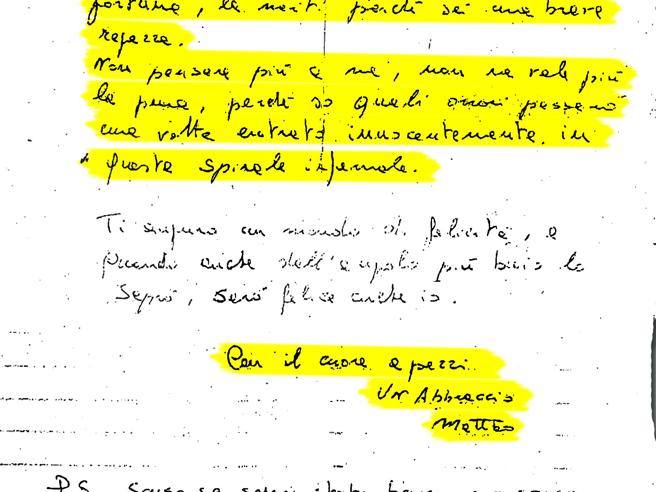 fortuna, la meriti perché sei una brava
ragazza.
Non pensare più a me, non ne vale più
la pena, perché so quali orrori passerò
una volta entrato innocentemente in
questa spirale infernale.
Ti auguro un mondo di felicità, e
quando anche dall'angolo più buio lo
saprò, sarò felice anche io.
Con il cuore a pezzi.
Un Abbraccio
Matteo
P.S. Scusa se sono stato